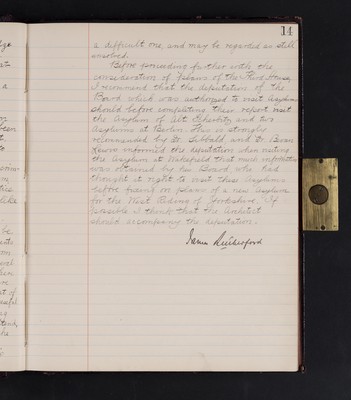 14
a difficult one, and may be regarded as still
unsolved.
Before proceeding further with the
consideration of plans of the New House,
I recommend that the deputation of the
Board which was authorised to visit Asylums
should before completing their report visit
the Asylum of Alt Scherbitz and two
Asylums at Berlin. This is strongly
recommended by Dr. Sibbald and Dr. Bevan
Lewis informed the deputation when visiting
the Asylum at Wakefield that much information
was obtained by his Board who had
thought it right to visit these Asylums
before fixing on plans of a new Asylum
for the West Riding of Yorkshire. If
possible I think that the Architect
should accompany the deputation.
James Rutherford